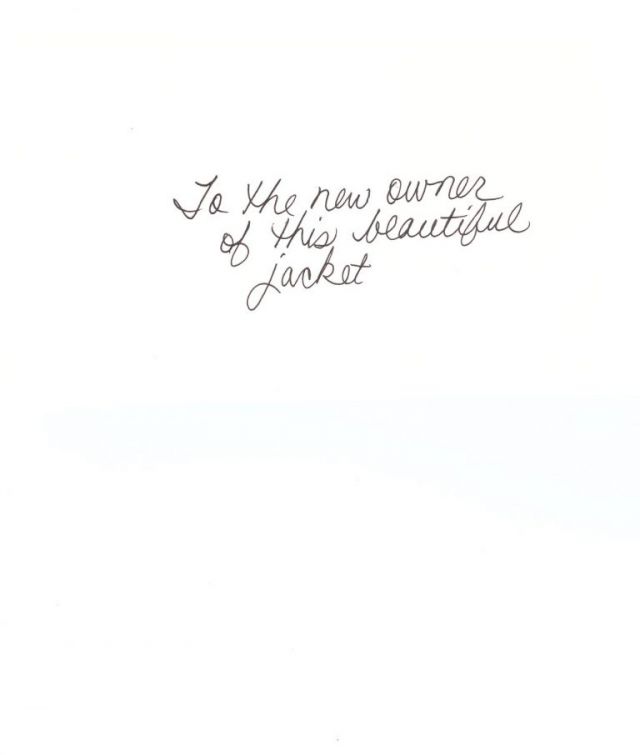 To the new owner
of this beautiful
jacket